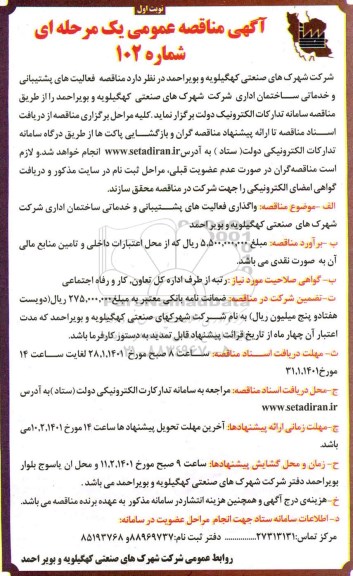 نوبت اول
آگهی مناقصه عمومی یک مرحله ای
شماره ۱۰۲
شرکت شهرک های صنعتی کهگیلویه و بویراحمد در نظر دارد مناقصه فعالیت های پشتیبانی
و خدماتی ساختمان اداری شرکت شهرک های صنعتی کهگیلویه و بویراحمد را از طریق
مناقصه سامانه تدارکات الکترونیک دولت برگزار نماید. کلیه مراحل برگزاری مناقصه از دریافت
اسناد مناقصه تا ارائه پیشنهاد مناقصه گران و بازگشایی پاکت ها از طریق درگاه سامانه
تدارکات الکترونیکی دولت( ستاد ) به آدرس www.setadiran.ir انجام خواهد شد.و لازم
است مناقصه‌گران در صورت عدم عضویت قبلی، مراحل ثبت نام در سایت مذکور و دریافت
گواهی امضای الکترونیکی را جهت شرکت در مناقصه محقق سازند.
الف -موضوع مناقصه: واگذاری فعالیت های پشتیبانی و خدماتی ساختمان اداری شرکت
شهرک های صنعتی کهگیلویه و بویراحمد
ب -برآورد مناقصه: مبلغ ۵,۵۰۰,۰۰۰,۰۰۰ ریال که از محل اعتبارات داخلی و تامین منابع مالی
آن به صورت نقدی می باشد.
پ -گواهی صلاحیت مورد نیاز: رتبه از طرف اداره کل تعاون، کار و رفاه اجتماعی
ت -تضمین شرکت در مناقصه: ضمانت نامه بانکی معتبر به مبلغ ۲۷۵,۰۰۰,۰۰۰ ریال(دویست
هفتادو پنج میلیون ریال) به نام شرکت شهرکهای صنعتی کهگیلویه و بویراحمد که مدت
اعتبار آن چهار ماه از تاریخ قرائت پیشنهاد قابل تمدید به دستور کارفرما باشد.
ث -مهلت دریافت اسناد مناقصه: ساعت ۸ صبح مورخ ۲۸,۱,۱۴۰۱ لغایت ساعت ۱۴
مورخ ۳۱,۱,۱۴۰۱
ج-محل دریافت اسناد مناقصه: مراجعه به سامانه تدارکات الکترونیکی دولت (ستاد )به آدرس
www.setadiran.ir
چ-مهلت زمانی ارائه پیشنهادها: آخرین مهلت تحویل پیشنهاد ها ساعت ۱۴ مورخ ۱۰,۲,۱۴۰۱می
باشد.
ح- زمان و محل گشایش پیشنهادها: ساعت ۹ صبح مورخ ۱۱,۲,۱۴۰۱ و محل آن یاسوج بلوار
بویراحمد دفتر شرکت شهرک های صنعتی کهگیلویه و بویراحمد می باشد .
خ-هزینه‌ی درج آگهی و همچنین هزینه انتشار در سامانه مذکور به عهده برنده مناقصه می باشد.
د- اطلاعات سامانه ستاد جهت انجام مراحل عضویت در سامانه:
مرکز تماس:۲۷۳۱۳۱۳۱.............. دفتر ثبت نام:۸۸۹۶۹۷۳۷و ۸۵۱۹۳۷۶۸
روابط عمومی شرکت شهرک های صنعتی کهگیلویه و بویر احمد